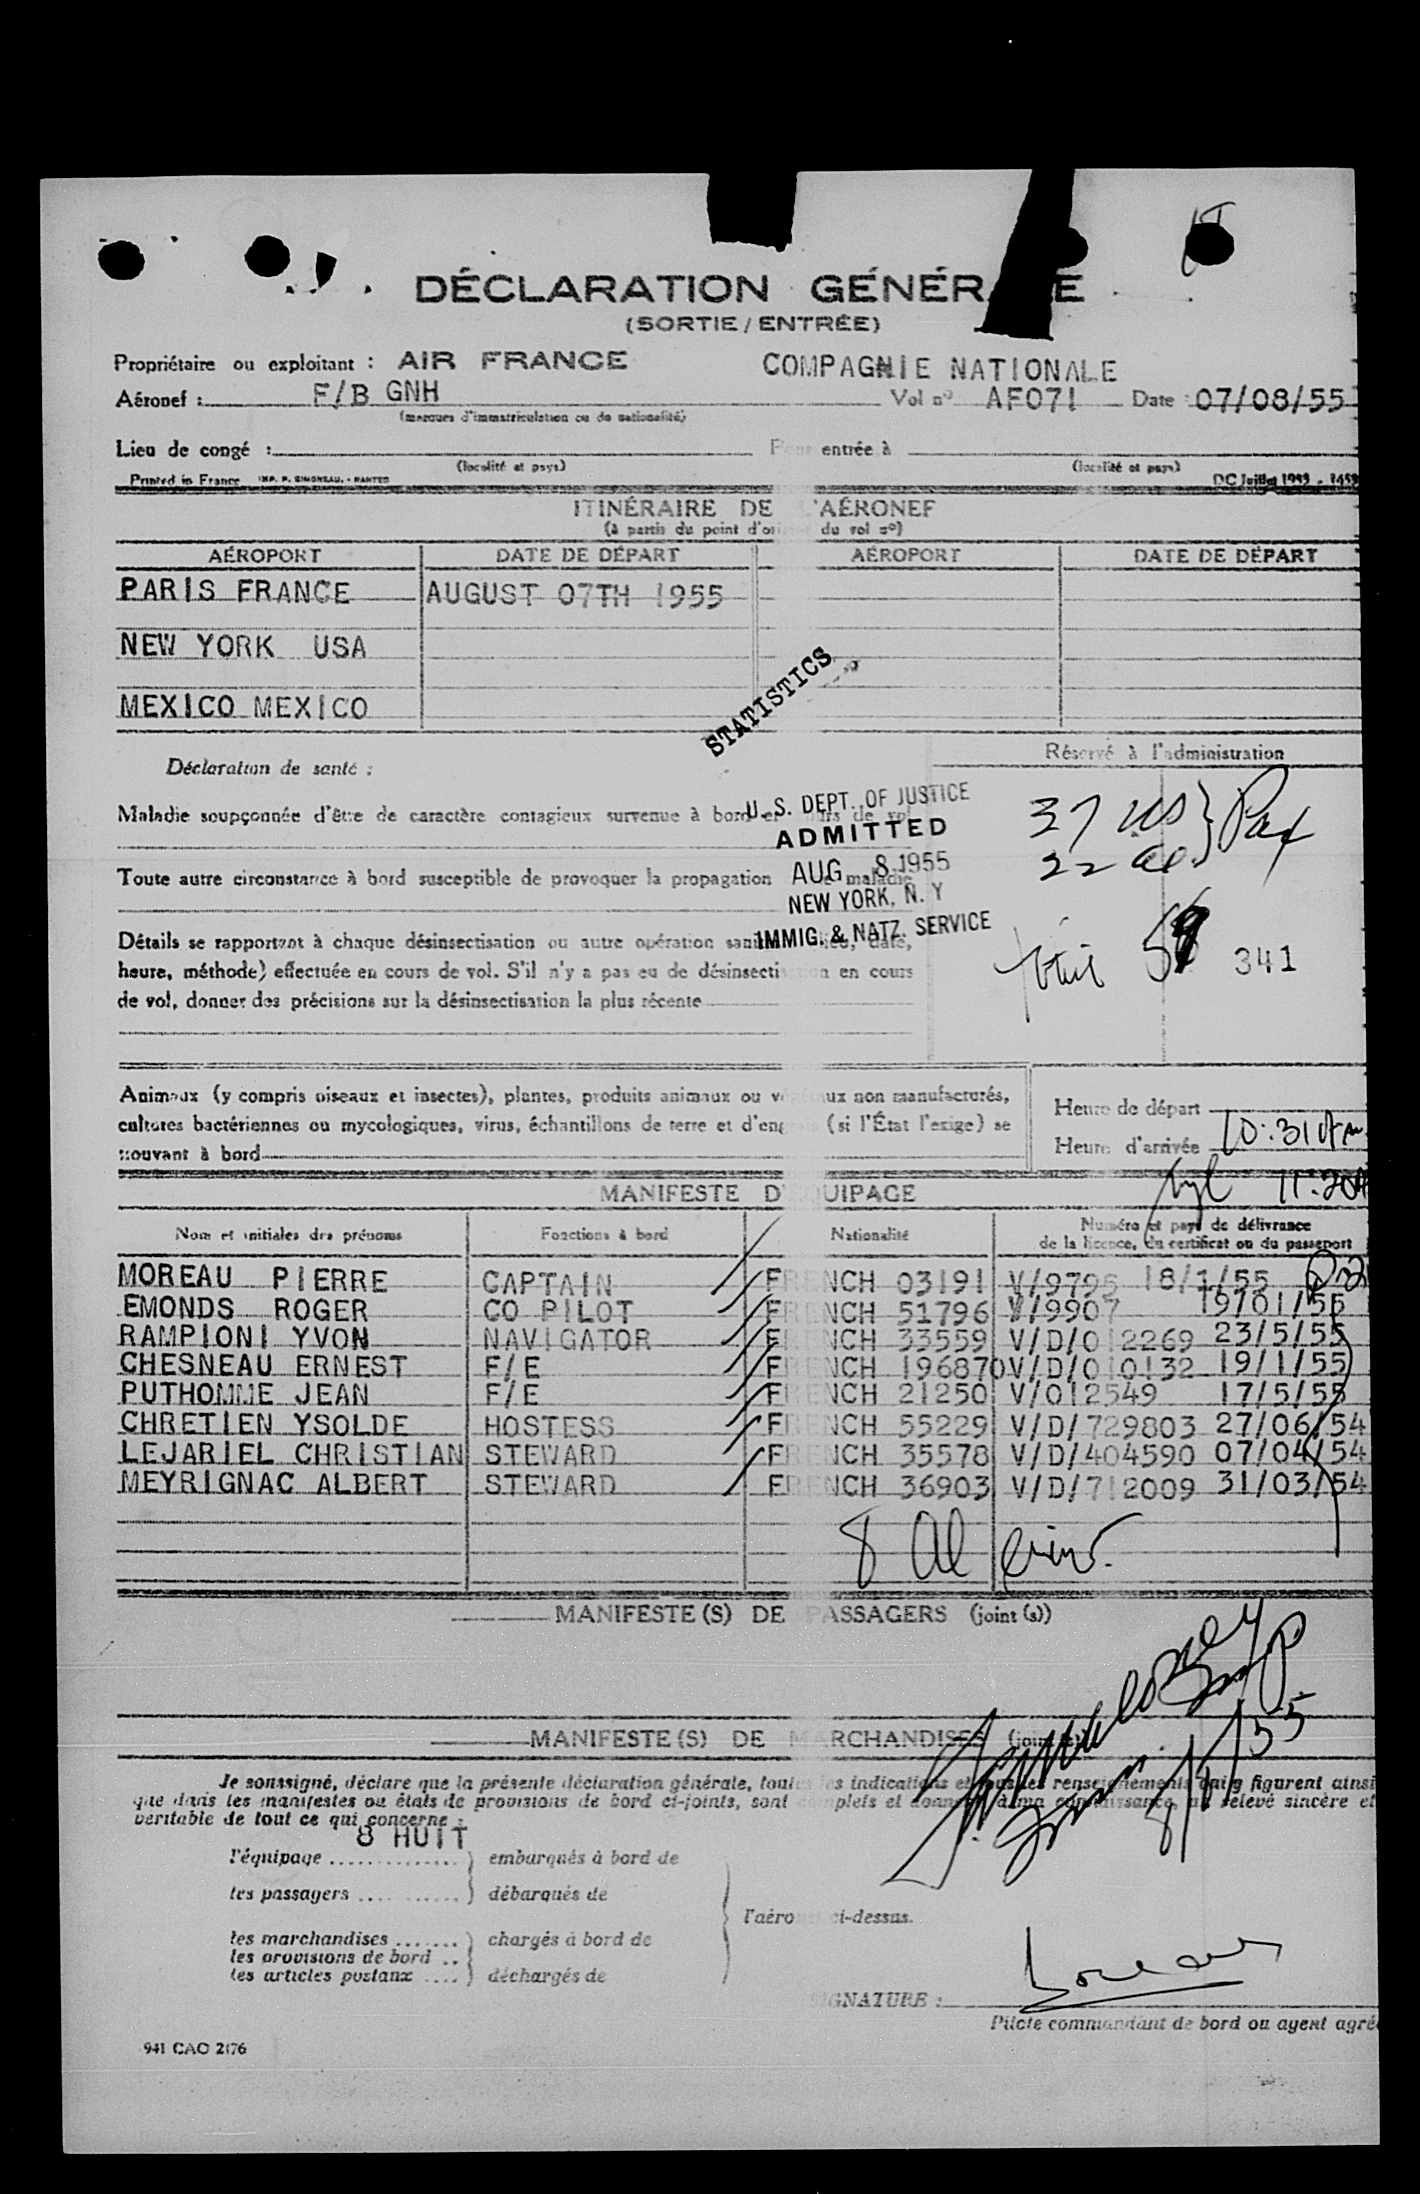 DÉCLARATION GÉNÉR E
(SORTIE / ENTRÉE)
Propriétaire ou exploitant : AIR FRANCE COMPAGNIE NATIONALE
Aéronef : F/B GNH Vol nº AF071 Date : 07/08/55
(marques d'immatriculation ou de nationalité)
Lieu de congé : entrée à
(localité et pays) (localité et pays)
Printed in France IMP. P. SIMONEAU. - NANTES DC Juillet
ITINÉRAIRE DE L'AÉRONEF
(à partir du point d'ori du vol nº)
AÉROPORT DATE DE DÉPART AÉROPORT DATE DE DÉPART
PARIS FRANCE AUGUST 07TH 1955
NEW YORK USA
MEXICO MEXICO
STATISTICS
Réservé à l'administration
Déclaration de santé :
37 US } Pax
22 al
Maladie soupçonnée d'être de caractère contagieux survenue à bord en cours de vol
U.S. DEPT. OF JUSTICE
ADMITTED
AUG 8 1955
NEW YORK, N. Y
IMMIG. & NATZ. SERVICE
Toute autre circonstance à bord susceptible de provoquer la propagation de maladie
59 341
Détails se rapportant à chaque désinsectisation ou autre opération sanit lieu, date,
heure, méthode) effectuée en cours de vol. S'il n'y a pas eu de désinsecti n en cours
de vol, donner des précisions sur la désinsectisation la plus récente
Animaux (y compris oiseaux et insectes), plantes, produits animaux ou v ux non manufacturés,
cultures bactériennes ou mycologiques, virus, échantillons de terre et d'eng (si l'État l'exige) se
trouvant à bord
Heure de départ
Heure d'arrivée 10:31 Am
MANIFESTE D'ÉQUIPAGE
Nom et initiales des prénoms Fonctions à bord Nationalité Numéro et pays de délivrance
de la licence, du certificat ou du passeport
MOREAU PIERRE CAPTAIN FRENCH 03191 V/9795 18/1/55
EMONDS ROGER CO PILOT FRENCH 51796 V/9907 19/01/55
RAMPIONI YVON NAVIGATOR FRENCH 33559 V/D/012269 23/5/55
CHESNEAU ERNEST F/E FRENCH 196870 V/D/010132 19/1/55
PUTHOMME JEAN F/E FRENCH 21250 V/012549 17/5/55
CHRETIEN YSOLDE HOSTESS FRENCH 55229 V/D/729803 27/06/54
LEJARIEL CHRISTIAN STEWARD FRENCH 35578 V/D/404590 07/04/54
MEYRIGNAC ALBERT STEWARD FRENCH 36903 V/D/712009 31/03/54
8 Al
MANIFESTE (S) DE PASSAGERS (joint (s))
MANIFESTE (S) DE MARCHANDISES (joint (s))
8/8/55
Je soussigné, déclare que la présente déclaration générale, toutes les indications et tous les renseignements qui y figurent ainsi
que dans les manifestes ou états de provisions de bord ci-joints, sont complets et donnent à ma connaissance, un relevé sincère et
véritable de tout ce qui concerne :
8 HUIT
l'équipage .............. } embarqués à bord de
les passagers ........... } débarqués de
l'aéronef ci-dessus.
les marchandises ....... } chargés à bord de
les provisions de bord ..
les articles postaux .... } déchargés de
SIGNATURE :
Pilote commandant de bord ou agent agré
941 CAO 2176